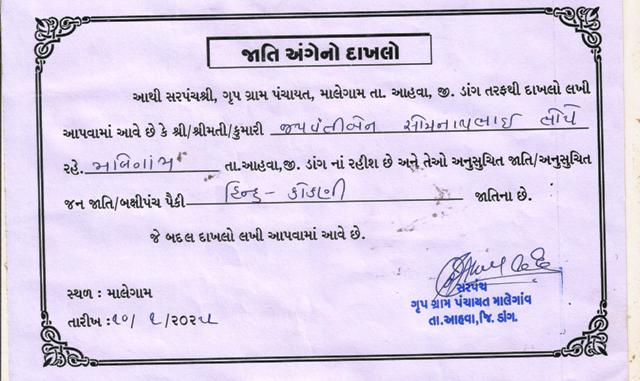 જાતિ અંગેનો દાખલો
આથી સરપંચશ્રી, ગૃપ ગ્રામ પંચાયત, માલેગામ તા. આહવા, જી. ડાંગ તરફથી દાખલો લખી
આપવામાં આવે છે કે શ્રી/શ્રીમતી/કુમારી જયવંતીબેન સોમનાથભાઇ
રહે. તા.આહવા,જી. ડાંગ નાં રહીશ છે અને તેઓ અનુસુચિત જાતિ/અનુસુચિત
જન જાતિ/બક્ષીપંચ પૈકી હિન્દુ - કોકણી જાતિના છે.
જે બદલ દાખલો લખી આપવામાં આવે છે.
સ્થળ : માલેગામ
તારીખ :
સરપંચ
ગૃપ ગ્રામ પંચાયત માલેગાંવ
તા.આહવા,જિ. ડાંગ.